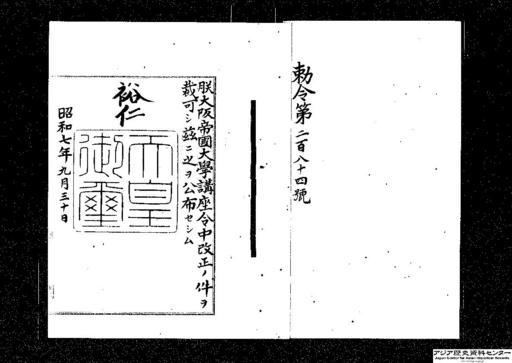 勅令第二百八十四號
朕大阪帝國大學講座令中改正ノ件ヲ
裁可シ茲ニ之ヲ公布セシム
裕仁
天皇
御璽
昭和七年九月三十日
アジア歴史資料センター
Japan Center for Asian Historical Records